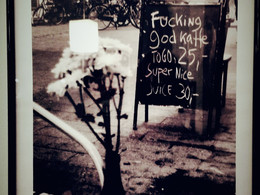 Fucking
god kaffe
TOGO: 25,-
Super Nice
JUICE 30,-